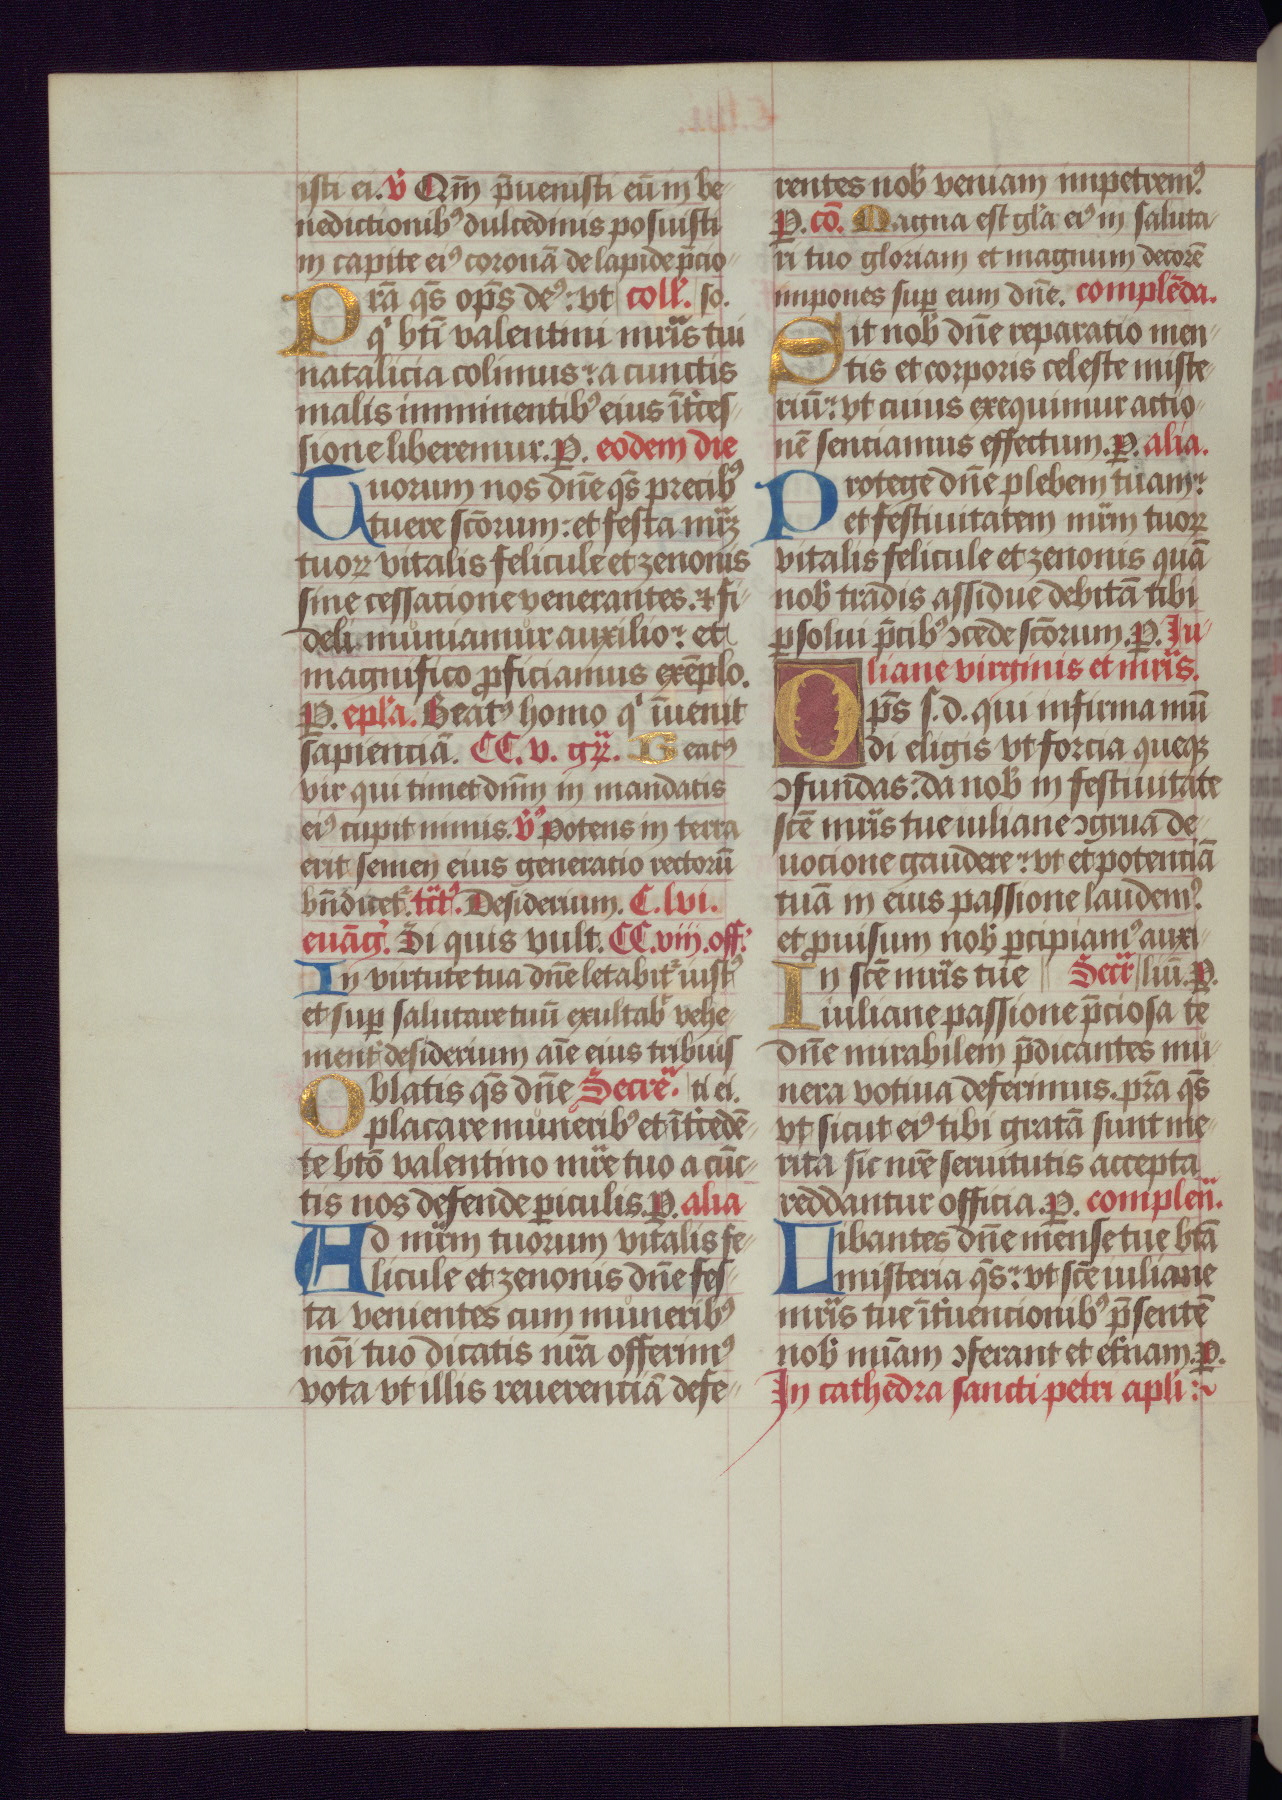 isti ei. v̄ Qm̄ p̄uenisti eū in be
nedictionibꝰ dulcedinis posuisti
in capite eiꝰ coronā de lapide p̄cio
Prā qs̄ op̄s deꝰ: vt coll'. so.
qͥ bt̄i valentini mr̄is tui
natalicia colimus: a cunctis
malis imminentibꝰ eius īt̄ces
sione liberemur. P. eodem die
Tuorum nos dn̄e qs̄ precibꝰ
tuere sc̄orum: et festa mr̄ꝝ
tuoꝝ vitalis felicule et zenonis
sine cessacione venerantes. ⁊ fi
deli muniamur auxilio: et
magnifico ꝓficiamus exēplo.
P. epl'a. Beatꝰ homo qͥ īuenit
sapienciā. CC. v. gr̄. Beatꝰ
vir qui timet dn̄m in mandatis
eiꝰ cupit nimis. v̄ꝰ Potens in terra
erit semen eius generatio rectorū
bn̄dicet᷑. tc̄tꝰ. Desiderium. C. lvi.
euāg'. Si quis vult. CC. viij. off.'
In virtute tua dn̄e letabit᷑ iustꝰ
et suꝑ salutare tuū exultab' vehe
ment᷑ desiderium aīe eius tribuis
Oblatis qs̄ dn̄e Secre᷑. ti ei.
placare muneribꝰ et īt̄cedē
te bt̄o valentino mr̄e tuo a cūc
tis nos defende ꝑiculis. P. alia
Ad mr̄m tuorum vitalis fe
licule et zenonis dn̄e fes
ta venientes cum muneribꝰ
nōi tuo dicatis nr̄a offerimꝰ
vota vt illis reuerenciā defe
rentes nob' veniam impetremꝰ.
P. cō. Magna est gl'a eiꝰ in saluta
ri tuo gloriam et magnum decorē
impones suꝑ eum dn̄e. complēda.
Sit nob' dn̄e reparatio men
tis et corporis celeste miste
riū: vt cuius exequimur actio
nē senciamus effectum. P. alia.
Protege dn̄e plebem tuam:
et festiuitatem mr̄m tuoꝝ
vitalis felicule et zenonis quā
nob' tradis assidue debitā tibi
ꝑsolui p̄cibꝰ ꝯcede sc̄orum. P. Iu
liane virginis et mr̄is.
Op̄s s. d. qui infirma mū
di eligis vt forcia queqꝫ
ꝯfundas: da nob' in festiuitate
sc̄e mr̄is tue iuliane ꝯgrua de
uocione gaudere: vt et potenciā
tuā in eius passione laudemꝰ.
et ꝓuisum nob' ꝑcipiamꝰ auxi
In sc̄e mr̄is tue Secr᷑ liū. P.
iuliane passione p̄ciosa te
dn̄e mirabilem p̄dicantes mu
nera votiua deferimus. pr̄a qs̄
vt sicut eiꝰ tibi gratā sunt me
rita sic nr̄e seruitutis accepta
reddantur officia. P. complen̄.
Libantes dn̄e mense tue bt̄a
misteria qs̄: vt sc̄e iuliane
mr̄is tue īt̄uencionibꝰ p̄sentē
nob' mīam ꝯferant et et̄nam. P.
In cathedra sancti petri apli: